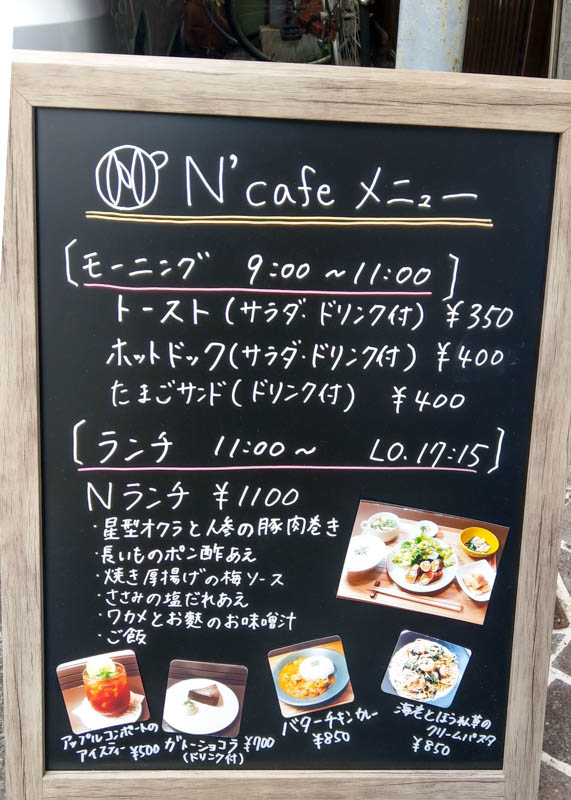 N N'cafe メニュー
[モーニング 9:00～11:00]
トースト(サラダ・ドリンク付) ¥350
ホットドック(サラダ・ドリンク付) ¥400
たまごサンド(ドリンク付) ¥400
[ランチ 11:00～ LO.17:15]
Nランチ ¥1100
・星型オクラと人参の豚肉巻き
・長いものポン酢あえ
・焼き厚揚げの梅ソース
・ささみの塩だれあえ
・ワカメとお麩のお味噌汁
・ご飯
アップルコンポートの
アイスティー ¥500
ガトーショコラ ¥700
(ドリンク付)
バターチキンカレー
¥850
海老とほうれん草の
クリームパスタ
¥850